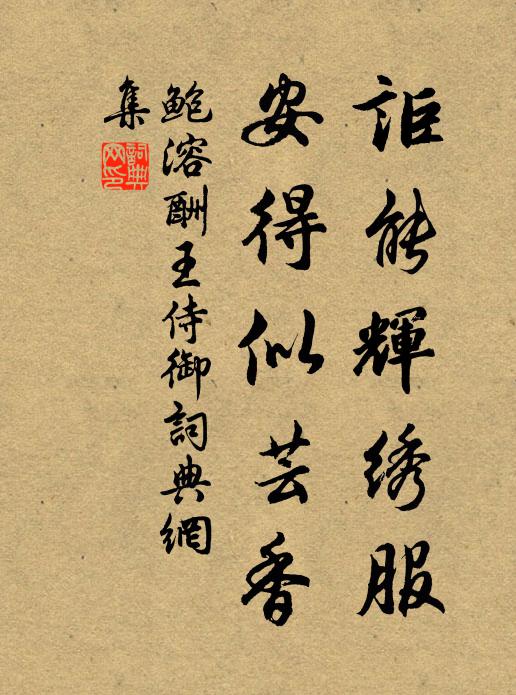 詎能輝綉服
安得似芸香
鮑溶酬王侍御詞典網
集
詞典網印